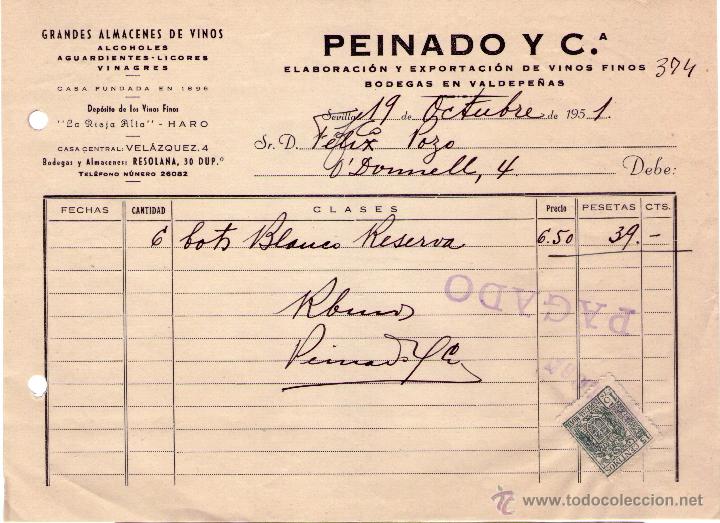 GRANDES ALMACENES DE VINOS
ALCOHOLES
AGUARDIENTES - LICORES
VINAGRES
CASA FUNDADA EN 1896
Depósito de los Vinos Finos
"La Rioja Alta" - HARO
CASA CENTRAL: VELÁZQUEZ, 4
Bodegas y Almacenes: RESOLANA, 30 DUP.º
TELÉFONO NÚMERO 26082
PEINADO Y C.ª
ELABORACIÓN Y EXPORTACIÓN DE VINOS FINOS
374
BODEGAS EN VALDEPEÑAS
Sevilla 19 de Octubre de 1951.
Sr. D. Félix Pozo
O'Donnell, 4 Debe:
FECHAS CANTIDAD CLASES Precio PESETAS CTS.
6 bots Blanco Reserva 6.50 39.-
PAGADO
Rbmos
Peinado y Cª
todocoleccion
www.todocoleccion.net